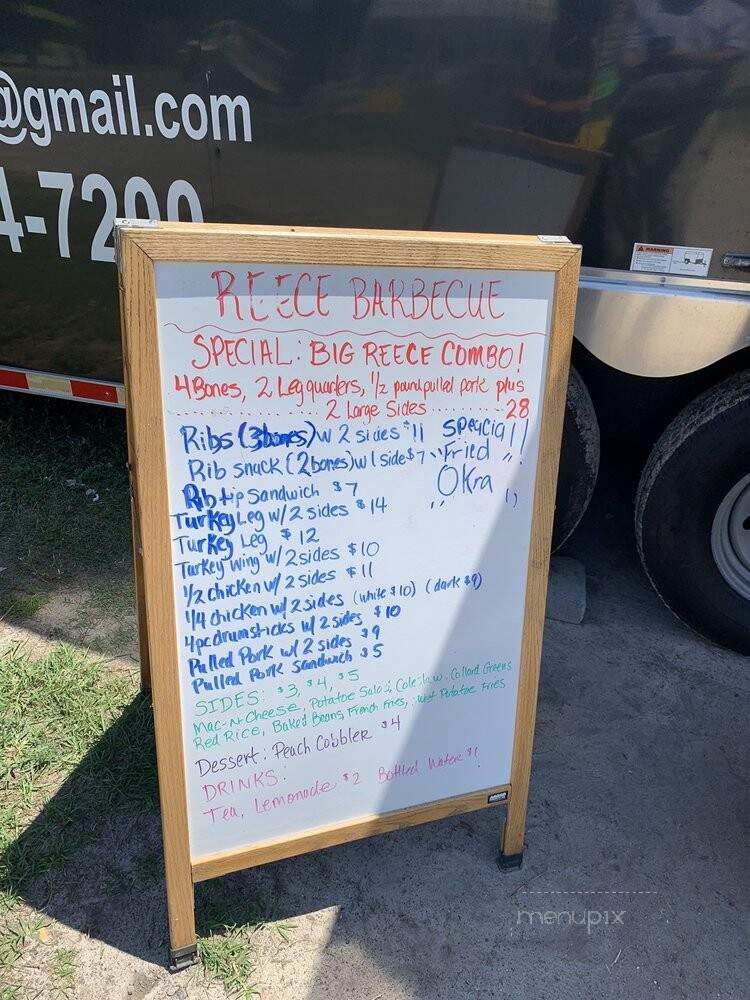 @gmail.com
4-7200
WARNING
REECE BARBECUE
SPECIAL: BIG REECE COMBO!
4 Bones, 2 Leg quarters, 1/2 pound pulled pork plus
2 Large Sides 28
Ribs (3 bones) w 2 sides $11
Rib snack (2 bones) w 1 side $7
Speacial!
"Fried
Okra"
Rib tip Sandwich $7
Turkey Leg w/ 2 sides $14
Turkey Leg $12
Turkey wing w/ 2 sides $10
1/2 chicken w/ 2 sides $11
1/4 chicken w/ 2 sides (white $10) (dark $9)
4pc drumsticks w/ 2 sides $10
Pulled Pork w/ 2 sides $9
Pulled Pork Sandwich $5
SIDES: $3, $4, $5
Mac-N-Cheese, Potatoe Salad, Coleslaw, Collard Greens
Red Rice, Baked Beans, French Fries, Potatoe Fries
Dessert: Peach Cobbler $4
DRINKS:
Tea, Lemonade $2 Bottled Water $1
menupix